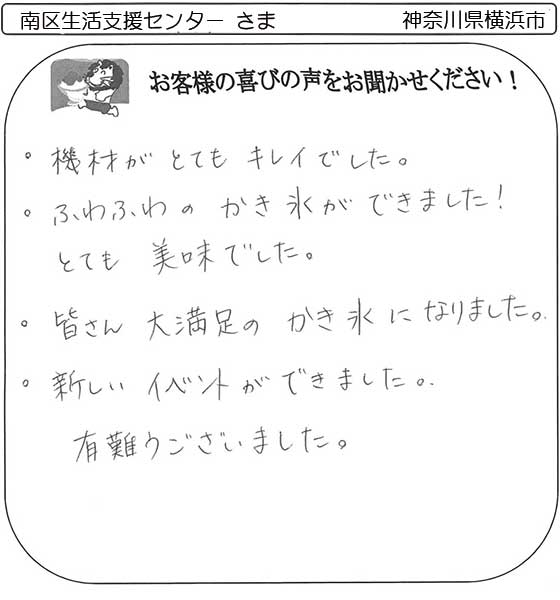 南区生活支援センター さま 神奈川県横浜市
お客様の喜びの声をお聞かせください！
。機材がとてもキレイでした。
。ふわふわのかき氷ができました！
とても美味でした。
。皆さん大満足のかき氷になりました。
。新しいイベントができました。
有難うございました。